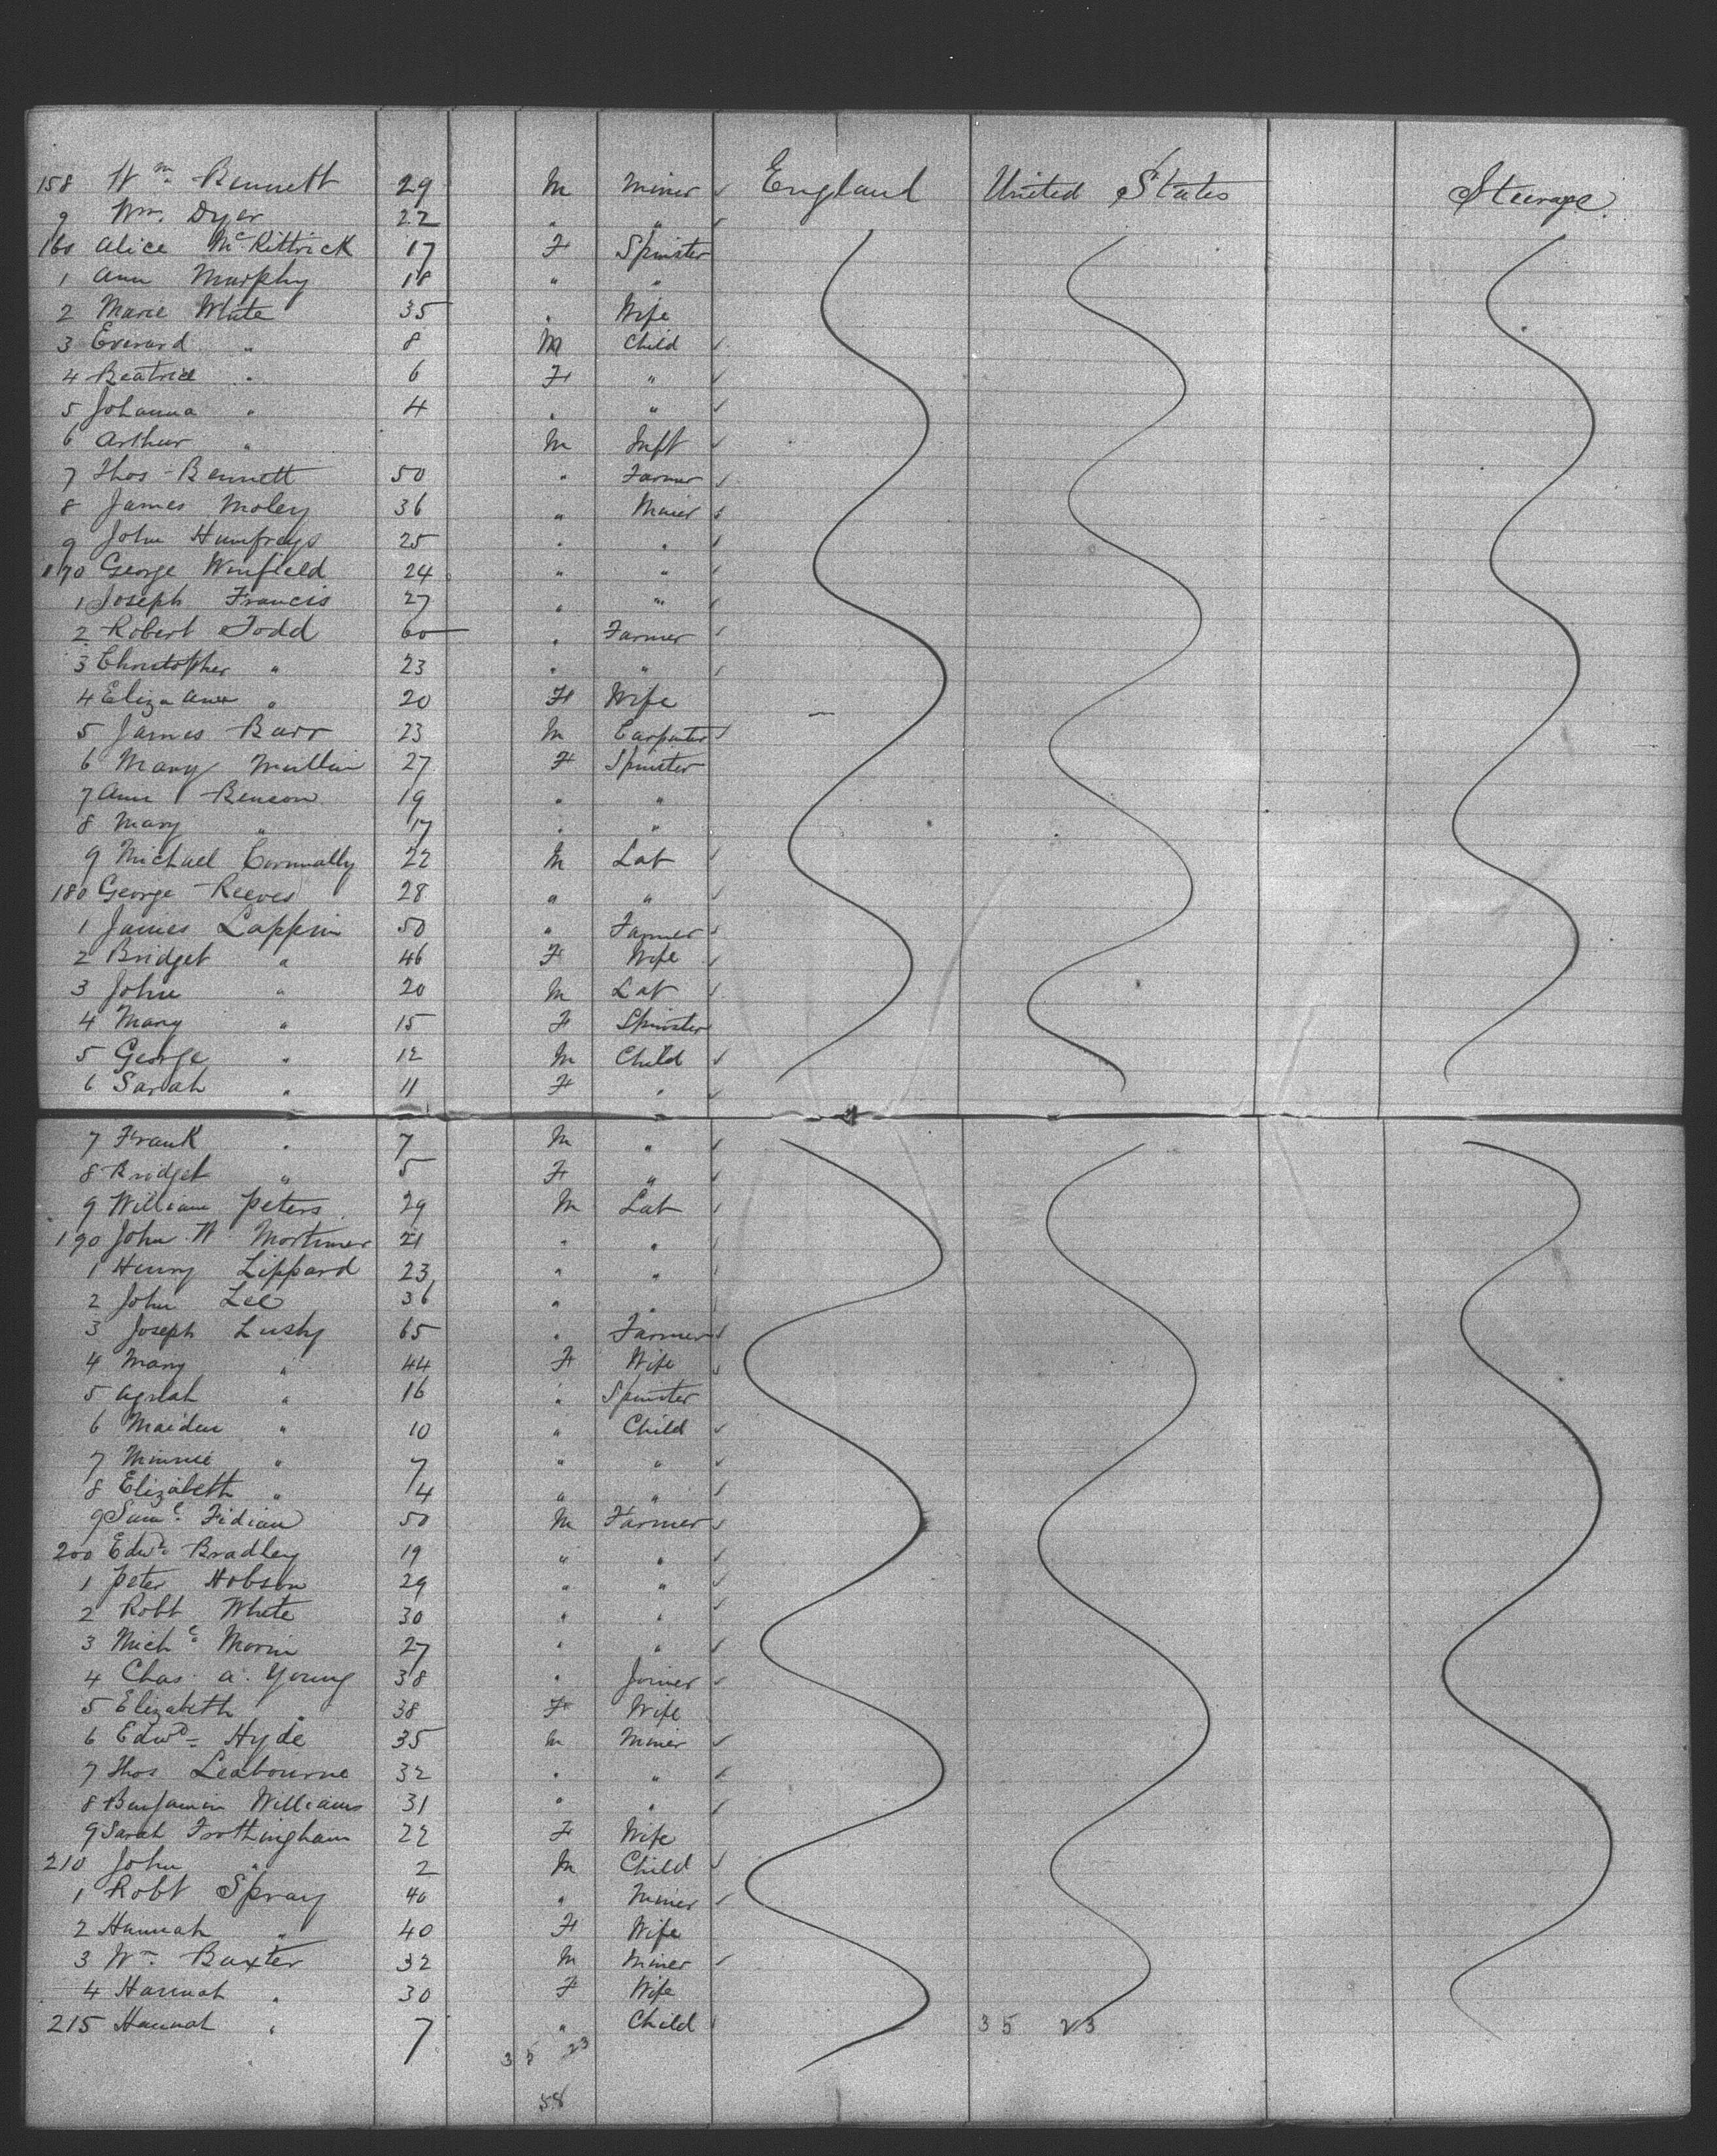 158 Wm. Bennett 29 M Miner ✓ England United States Steerage.
9 Wm. Dyer 22 " "
160 Alice McKittrick 17 F Spinster
1 Ann Murphy 18 " "
2 Marie White 35 " Wife
3 Everard " 8 M Child ✓
4 Beatrice " 6 F " ✓
5 Johanna " 4 " " ✓
6 Arthur " M Inft ✓
7 Thos Bennett 50 " Farmer ✓
8 James Moley 36 " Miner ✓
9 John Humfreys 25 " " ✓
170 George Winfield 24 " " ✓
1 Joseph Francis 27 " " ✓
2 Robert Todd 60 " Farmer ✓
3 Christopher " 23 " " ✓
4 Eliza Ann " 20 F Wife
5 James Barr 23 M Carpenter ✓
6 Mary Mullin 27 F Spinster
7 Ann Benson 19 " "
8 Mary " 17 " "
9 Michael Connolly 22 M Lab ✓
180 George Reeves 28 " " ✓
1 James Lappin 50 " Farmer ✓
2 Bridget " 46 F Wife ✓
3 John " 20 M Lab ✓
4 Mary " 15 F Spinster
5 George " 12 M Child ✓
6 Sarah " 11 F " ✓
7 Frank " 7 M " ✓
8 Bridget " 5 F " ✓
9 William Peters 29 M Lab ✓
190 John W. Mortimer 21 " " ✓
1 Henry Lippard 23 " "
2 John Lee 36 " "
3 Joseph Lushy 65 " Farmer ✓
4 Mary " 44 F Wife ✓
5 " 16 " Spinster
6 Maiden " 10 " Child ✓
7 Minnie " 7 " " ✓
8 Elizabeth " 4 " " ✓
9 Saml. Fidian 50 M Farmer ✓
200 Edwd. Bradley 19 " " ✓
1 Peter Hobson 29 " " ✓
2 Robt White 30 " " ✓
3 Michl. Morin 27 " " ✓
4 Chas. A. Young 38 " Joiner ✓
5 Elizabeth " 38 F Wife
6 Edwd. Hyde 35 M Miner ✓
7 Thos Leabourne 32 " " ✓
8 Benjamin Williams 31 " " ✓
9 Sarah Frothingham 22 F Wife
210 John " 2 M Child ✓
1 Robt Spray 40 " Miner ✓
2 Hannah " 40 F Wife
3 Wm. Baxter 32 M Miner ✓
4 Hannah " 30 F Wife
215 Hannah " 7 " Child 35 23
35 23
58